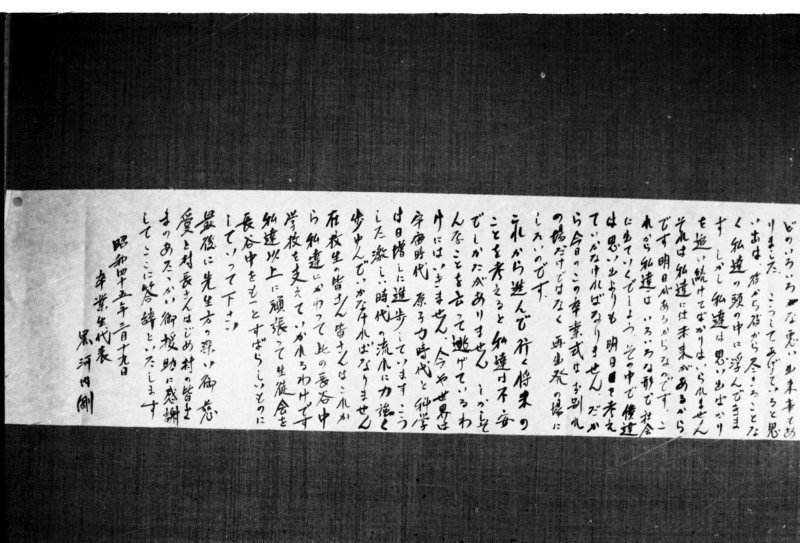 どのいろいろな思い出来事もあ
りました。こうしてあげていると思
い出は、次から次から尽きることな
く私達の頭の中に浮んできま
す。しかし私達は思い出ばかり
を追い続けてばかりはいられません
それは私達には未来があるから
です。明日があるからなのです。こ
れから私達は、いろいろな形で社会
に出ていくでしょう。その中で僕達
は思い出よりも明日を考え
ていかなければなりません。だか
ら今日のこの卒業式はお別れ
の場だけではなく再出発の場に
したいのです。
これから進んで行く将来の
ことを考えると私達は不安
でしかたがありません。しかしそ
んなことを言って逃げているわ
けにはいきません。今や世界は
宇宙時代、原子力時代と科学
は日増しに進歩しています。こう
した激しい時代の流れに力強く
歩んでいかなければなりません
在校生の皆さん、皆さんは、これか
ら私達にかわって此の長谷中
学校を支えていかれるわけです
私達以上に頑張って生徒会を
長谷中をもっとすばらしいものに
していって下さい
最後に先生方の深い御慈
愛と村長さんはじめ村の皆さ
まのあたたかい御援助に感謝
してここに答辞といたします
昭和四十五年三月十九日
卒業生代表
黒河内剛